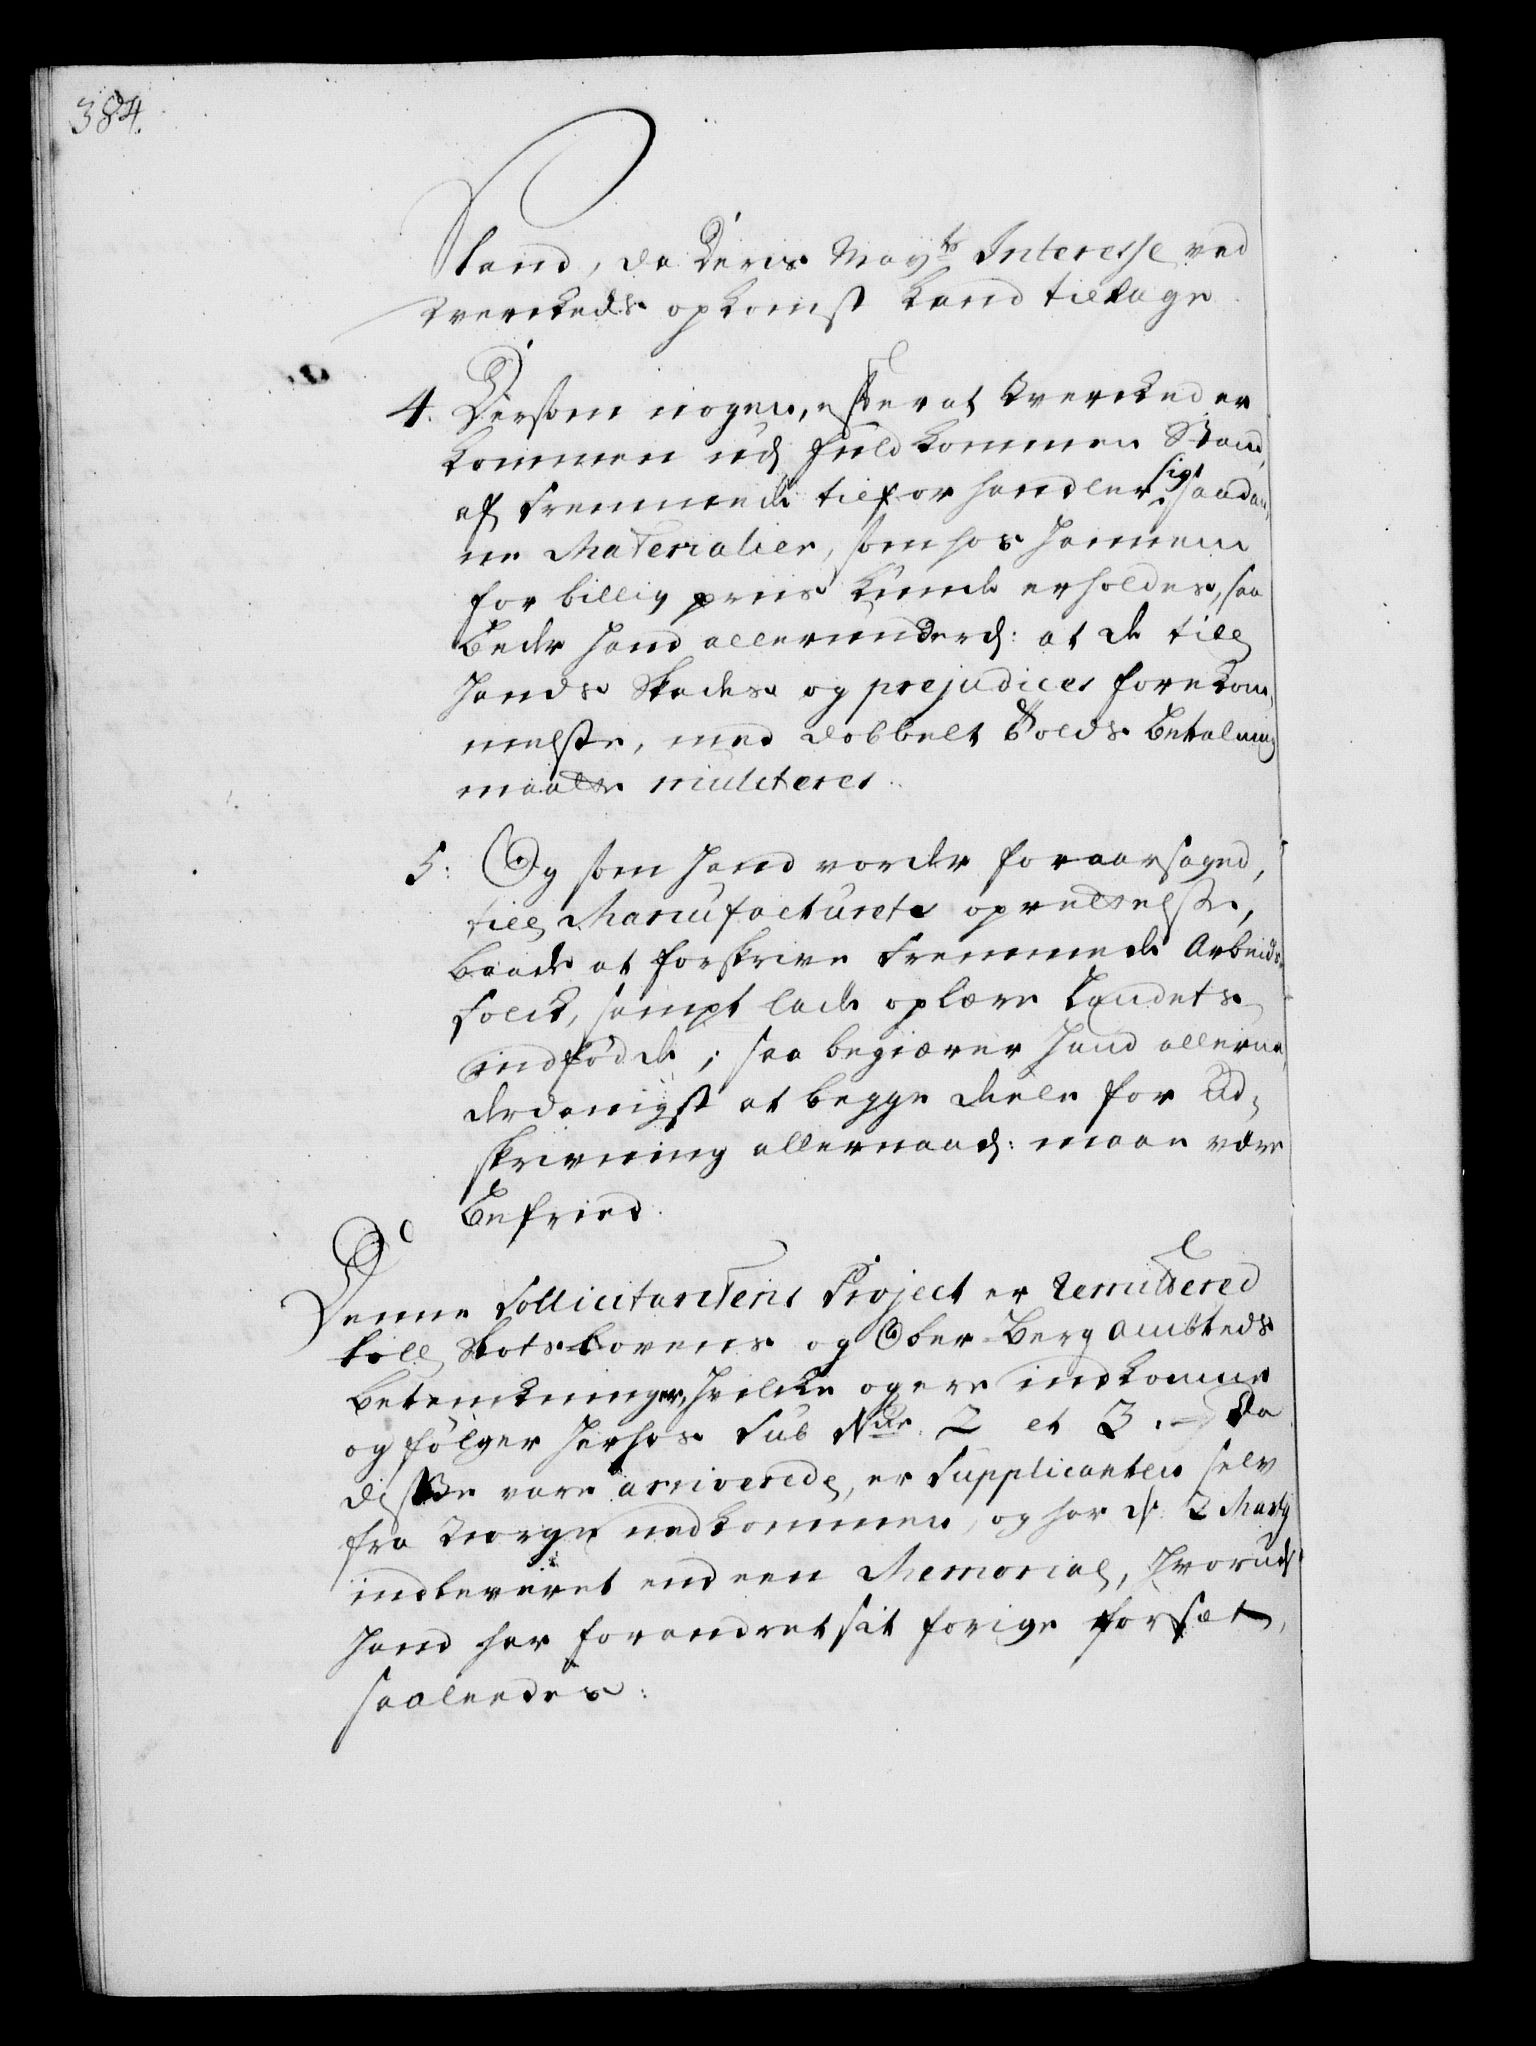 384.
Stand, da Deris May.ts Interesse ved
Werckeds opkomst kand tiltage
4. Dersom nogen, efter at Wercked er
kommen udj fuldkommen Stand,
af fremmede tilforhandler sig saadan,
ne Materialier, som hos hannem
for billig priis kunde erholdes, saa
beder hand allerunderd: at de till
hands Skades og prejudices forekom,
melse, med dobbelt Tolds betalning
maatte mulcteres.
5: Og som hand vorder foraarsaged,
till Manufacturets oprettelse,
baade at forskrive fremmede Arbeids
folck, sampt lade oplære Landets
indfødde; saa begiærer hand allerun,
derdanigst at begge deele for Ud,
skrivning allernaad: maae være
befried.
Denne Sollicitantens Project er remittered
till Slotslovens og Ober-Berg Ambteds
betenckninger, hvilcke ogsaa indkomne
og følger herhos sub N.ur 2 et 3. Da
disse vare arriverede, er Supplicanten selv
fra Norge nedkommen, og har d. 2 Martj
indleveret end een Memorial, hvorudj
hand har forandret sit forige forsæt,
saaleedes: